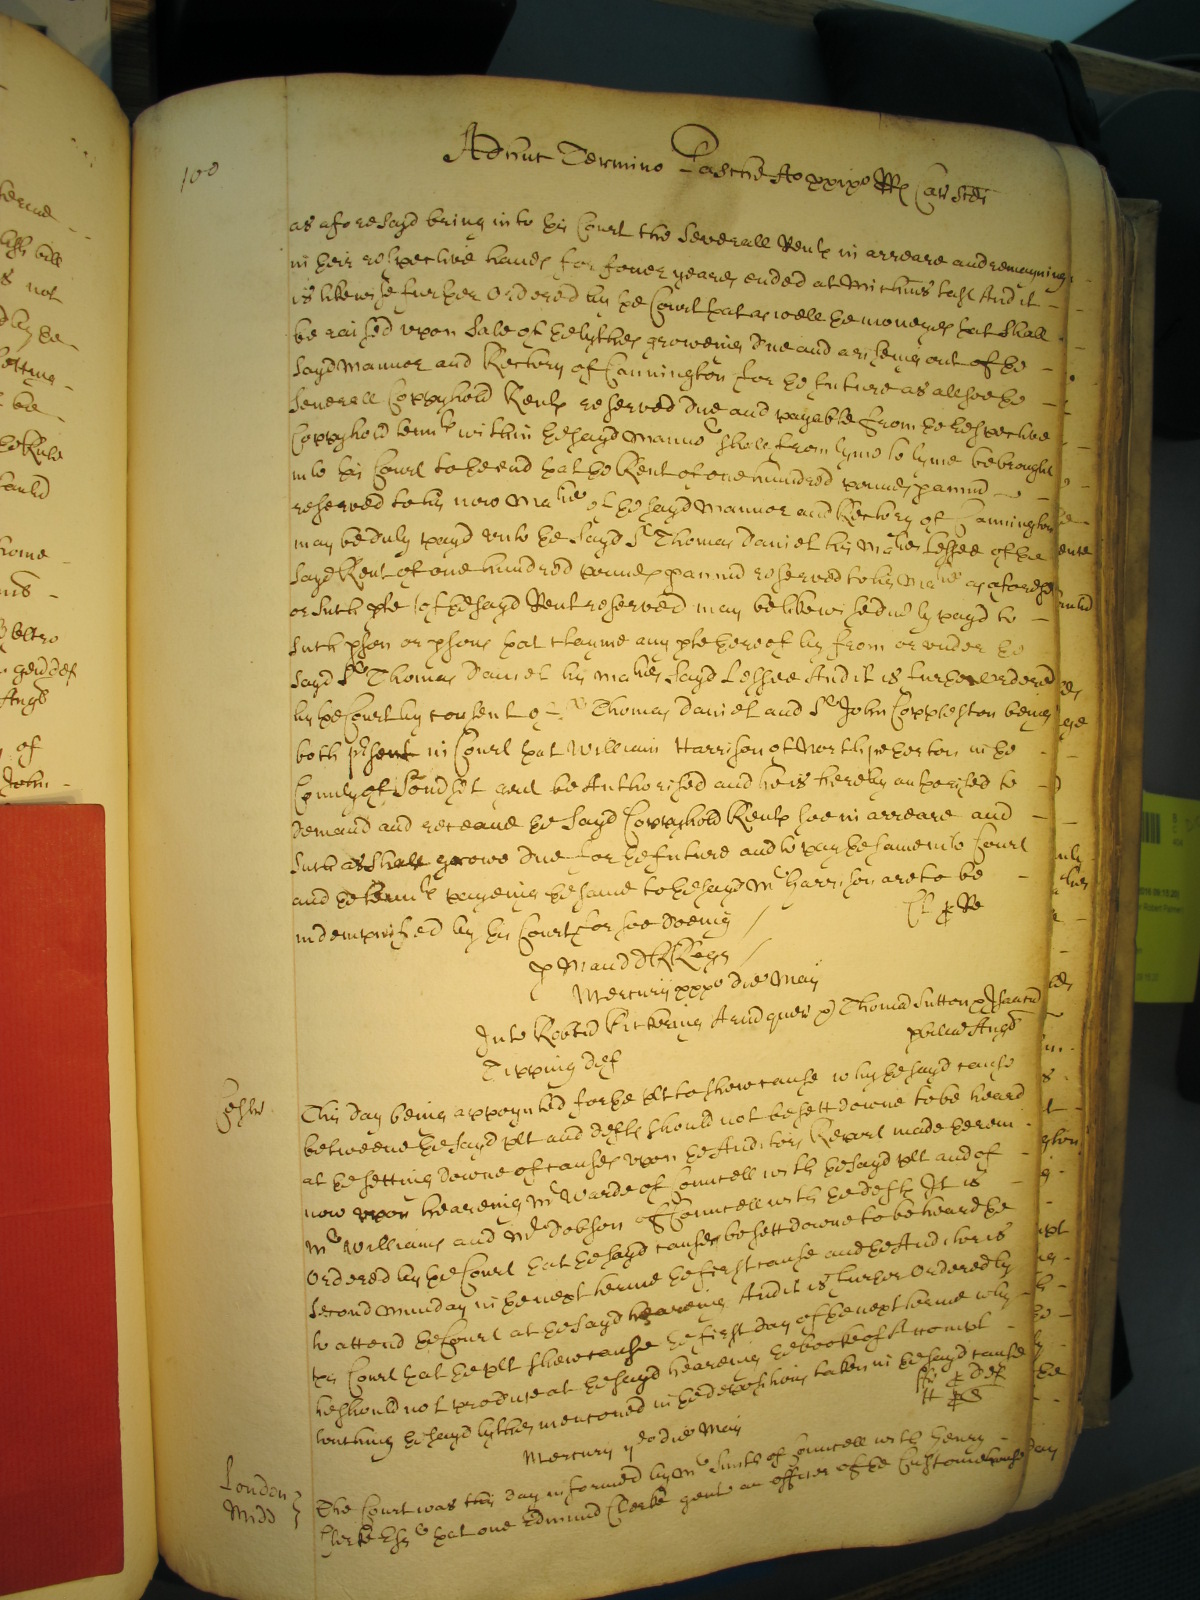 100
Adhuc Termino Pasche Ao xxixo Rs Cari Scdi
as aforesayd bring into his Court the Severall Rents in arreare and remayning
in their respective hands for fower yeares ended at Michmas last And it
is likewise further Ordered by the Court that as well the moneyes that shall
be raised upon Sale of the tythes groweing due and ariseing out of the
sayd Mannor and Rectory of Cannington for the future as allsoe the
Severall Copyhold Rents reserved due and payable from the respective
Copyhold tennts within the sayd Mannor shall from tyme to tyme be brought
into this Court to the end that the Rent of one hundred pounds p annu
reserved to his now Matie of the sayd Mannor and Rectory of Cannington
may be duly payd unto the Sayd Sr Thomas Daniel his Maties Lessee of the
sayd Rent of one hundred pounds p annu reserved to his Matie as aforesd
or such pte of the sayd Rent reserved may be likewise duely payd to
such pson or psons that clayme any pte thereof by from or under the
sayd Sr Thomas Daniel his Maties sayd Lessee And it is further ordered
by the Court by consent of Sr Thomas Daniel and Sr John Coppleston being
both psent in Court that William Harrison of North petherton in the
County of Somst gent be Authorised and he is hereby autherised to
demand and receave the sayd Copyhold Rents soe in arreare and
such as shall growe due for the future and to pay the same into Court
and the tennts payeing the same to the sayd Mr Harrison are to be
indempnifed by this Court for soe doeing
Mercurij xxxo die Maij
Inter Robtu Pickering Armu quer & Thoma Sutton & Isaacu
Tipping def
This day being appoynted for the plt to shew cause why the sayd cause
betweene the sayd plt and defts should not be sett downe to be heard
at the setting downe of causes upon the Auditors Report made therein
now upon heareing Mr Warde of Councell with the sayd plt and of
Mr Williams and Mr Dobson of Councell with the defts It is
Ordered by the Court that the sayd cause be sett downe to be heard the
second Munday in the next terme the first cause and the Auditor is
to attend the Court at the sayd heareing And it is further Ordered by
the Court that the plt shew cause the first day of the next terme why
he should not produce at the sayd heareing the booke of Accompt
touching the sayd tythes mencioned in the deposicions taken in the sayd cause
Mercurij die Maij
London
Midd
The Court was this day informed by Mr Smith of Councell with Henry
Clerke Esqr that one Edmund Clerke gent an officer of the Custome house